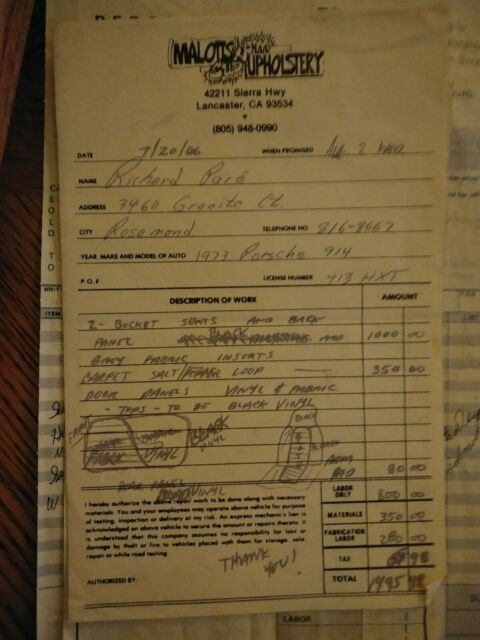 MALOTTS
UPHOLSTERY
42211 Sierra Hwy
Lancaster, CA 93534
(805) 948-0990
DATE 7/20/06 WHEN PROMISED Aug 2 Wed
NAME Richard Paré
ADDRESS 3460 Granite Ct.
CITY Rosamond TELEPHONE NO 816-8667
YEAR, MAKE AND MODEL OF AUTO 1973 Porsche 914
P.O.# LICENSE NUMBER 413 HXT
DESCRIPTION OF WORK AMOUNT
2- BUCKET SEATS AND BACK
PANEL BLACK AND 1000 00
GREY FABRIC INSERTS
CARPET SALT/PEPPER LOOP 350 00
DOOR PANELS VINYL & FABRIC
- TOPS - TO BE BLACK VINYL
FABRIC VINYL BLACK VINYL
BLACK
REAR PANEL
VINYL
80 00
I hereby authorize the above repair work to be done along with necessary
materials. You and your employees may operate above vehicle for purpose
of testing, inspection or delivery at my risk. An express mechanic's lien is
acknowledged on above vehicle to secure the amount or repairs thereto. It
is understood that this company assumes no responsibility for loss or
damage by theft or fire to vehicles placed with them for storage, sale,
repair or while road testing.
LABOR ONLY 800 00
MATERIALS 350 00
FABRICATION LABOR 280 00
THANK YOU!
TAX 98
AUTHORIZED BY:
TOTAL 1495 98
SOLD TO
ITEM
LABOR